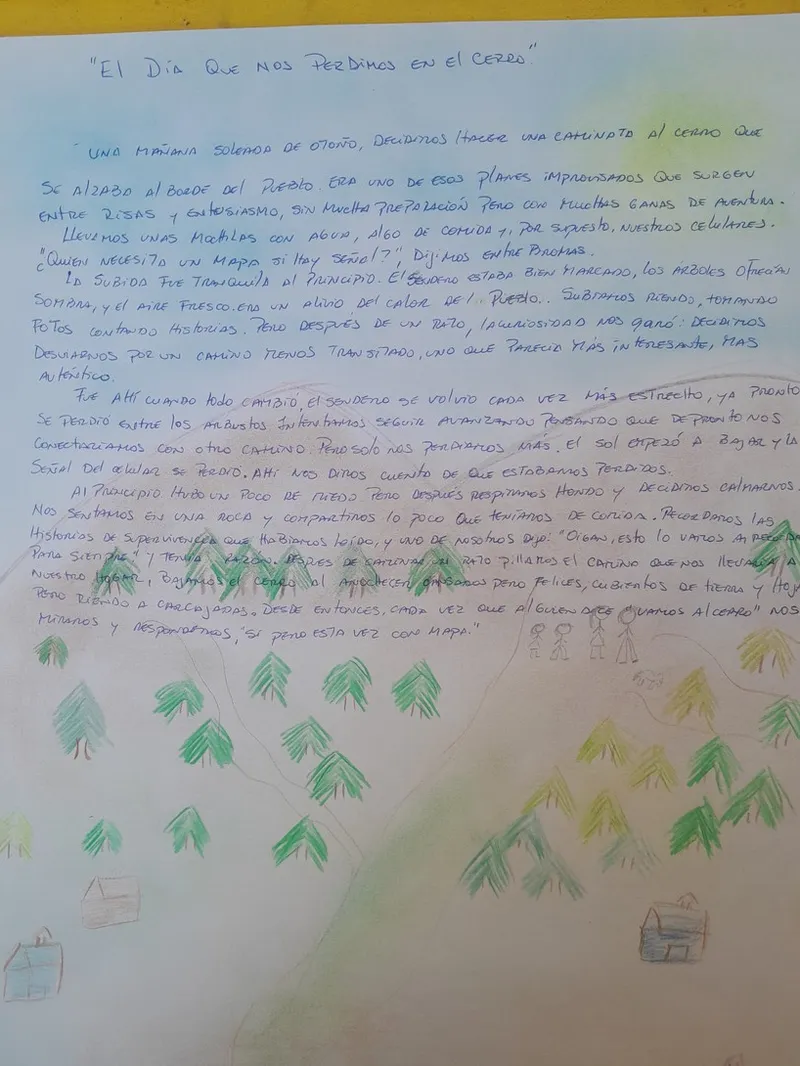 "El Día Que nos Perdimos en el cerro"
Una mañana soleada de otoño, decidimos hacer una caminata al cerro que
se alzaba al borde del pueblo. Era uno de esos planes improvisados que surgen
entre risas y entusiasmo, sin mucha preparación pero con muchas ganas de aventura.
Llevamos unas mochilas con agua, algo de comida y, por supuesto, nuestros celulares.
"¿Quien necesita un mapa si hay señal?", Dijimos entre bromas.
La subida fue tranquila al principio. El sendero estaba bien marcado, los árboles ofrecían
sombra, y el aire fresco era un alivio del calor del pueblo.. Subiamos riendo, tomando
fotos contando historias. Pero después de un rato, la curiosidad nos ganó: decidimos
desviarnos por un camino menos transitado, uno que parecía más interesante, mas
auténtico.
Fue ahí cuando todo cambió, el sendero se volvio cada vez más estrecho, ya pronto
se perdió entre los arbustos Intentamos seguir avanzando pensando que de pronto nos
conectaríamos con otro camino. Pero solo nos perdíamos más. El sol empezó a bajar y la
señal del celular se perdió. Ahí nos dimos cuenta de que estabamos perdidos.
Al principio hubo un poco de miedo pero después respiramos hondo y decidimos calmarnos.
Nos sentamos en una roca y compartimos lo poco que teníamos de comida. Recordamos las
historias de supervivencia que habíamos leído, y uno de nosotros dijo: "Oigan, esto lo vamos a recorda
para siempre" y tenía razón. Despues de caminar un rato pillamos el camino que nos llevaría a
nuestro hogar, bajamos el cerro al anochecer, cansados pero felices, cubiertos de tierra y hoja
pero riendo a carcajadas. Desde entonces, cada vez que alguien dice "vamos al cerro" nos
miramos y respondemos, "si pero esta vez con mapa."